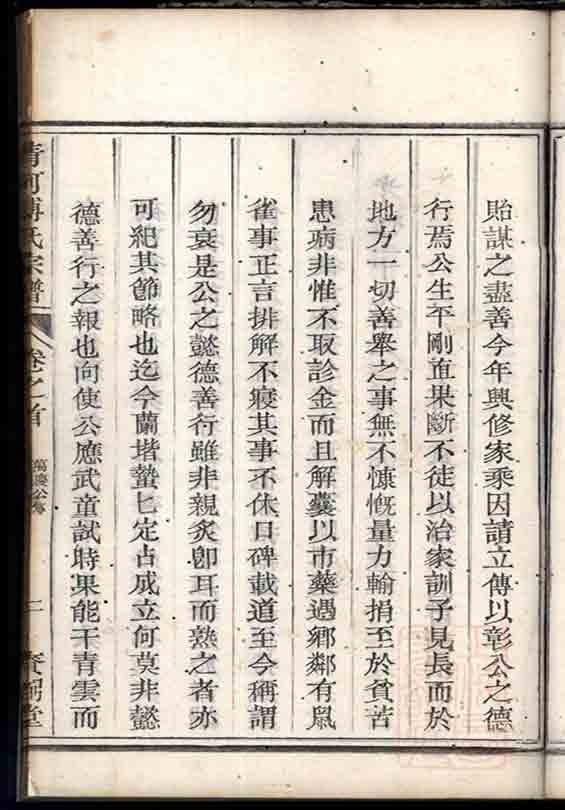 貽謀之盡善今年興修家乘因請立傳以彰公之德
行焉公生平剛直果斷不徒以治家訓子見長而於
地方一切善舉之事無不慷慨量力輸捐至於貧苦
患病非惟不取診金而且解囊以市藥遇鄉鄰有鼠
雀事正言排解不寢其事不休口碑載道至今稱謂
勿衰是公之懿德善行雖非親炙卽耳而熟之者亦
可紀其節略也迄今蘭堦蟄匕定占成立何莫非懿
德善行之報也向使公應武童試時果能干青雲而
清河傅氏宗譜
卷之首
公傳
二
堂